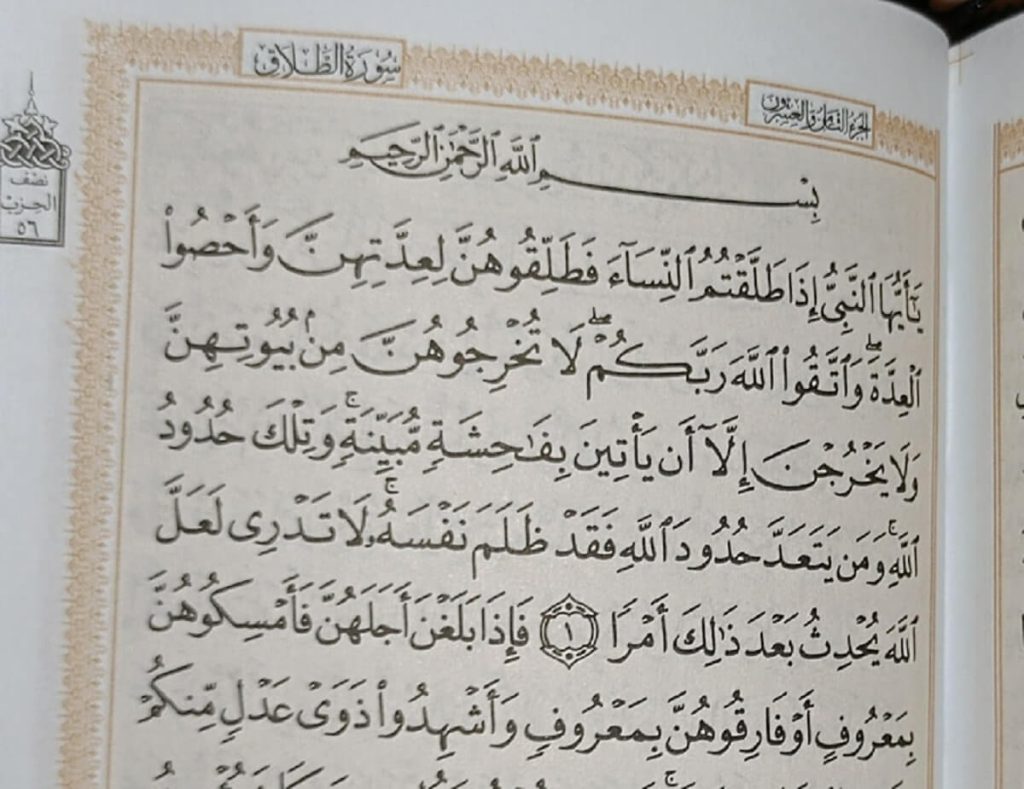 سُورَةُ الطَّلَاقِ
الجزء الثامن والعشرون
نصف
الحزب
٥٦
بِسْمِ ٱللَّهِ ٱلرَّحْمَٰنِ ٱلرَّحِيمِ
يَٰٓأَيُّهَا ٱلنَّبِىُّ إِذَا طَلَّقْتُمُ ٱلنِّسَآءَ فَطَلِّقُوهُنَّ لِعِدَّتِهِنَّ وَأَحْصُوا۟
ٱلْعِدَّةَۖ وَٱتَّقُوا۟ ٱللَّهَ رَبَّكُمْۖ لَا تُخْرِجُوهُنَّ مِنۢ بُيُوتِهِنَّ
وَلَا يَخْرُجْنَ إِلَّآ أَن يَأْتِينَ بِفَٰحِشَةٍ مُّبَيِّنَةٍۚ وَتِلْكَ حُدُودُ
ٱللَّهِۚ وَمَن يَتَعَدَّ حُدُودَ ٱللَّهِ فَقَدْ ظَلَمَ نَفْسَهُۥۚ لَا تَدْرِى لَعَلَّ
ٱللَّهَ يُحْدِثُ بَعْدَ ذَٰلِكَ أَمْرًا ١ فَإِذَا بَلَغْنَ أَجَلَهُنَّ فَأَمْسِكُوهُنَّ
بِمَعْرُوفٍ أَوْ فَارِقُوهُنَّ بِمَعْرُوفٍ وَأَشْهِدُوا۟ ذَوَىْ عَدْلٍ مِّنكُمْ